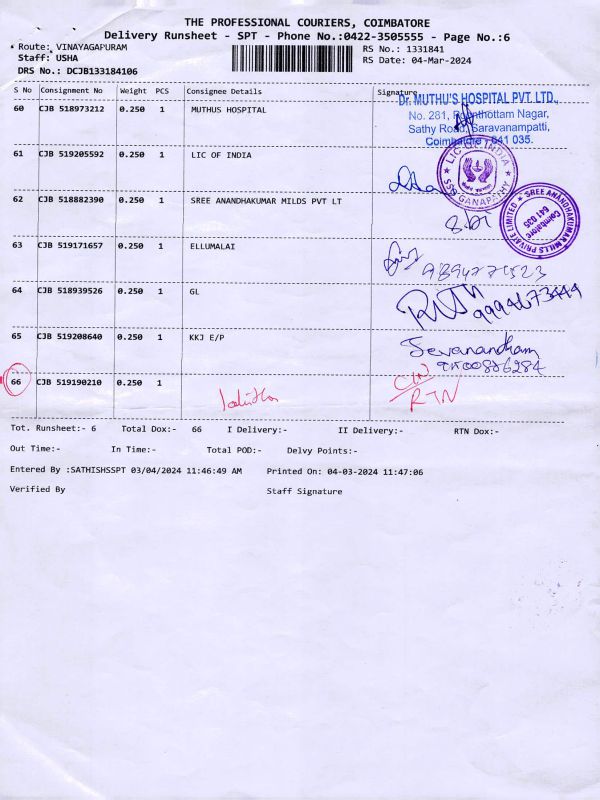 THE PROFESSIONAL COURIERS, COIMBATORE
Delivery Runsheet - SPT - Phone No.:0422-3505555 - Page No.:6
Route: VINAYAGAPURAM
RS No.: 1331841
Staff: USHA
RS Date: 04-Mar-2024
DRS No.: DCJB133184106
S No Consignment No Weight PCS Consignee Details Signature
60 CJB 518973212 0.250 1 MUTHUS HOSPITAL
Dr. MUTHU'S HOSPITAL PVT. LTD.,
No. 281, Poonthottam Nagar,
Sathy Road, Saravanampatti,
Coimbatore - 641 035.
61 CJB 519205592 0.250 1 LIC OF INDIA
LIC OF INDIA
SSO GANAPATHY
62 CJB 518882390 0.250 1 SREE ANANDHAKUMAR MILDS PVT LT
SREE ANANDHAKUMAR MILLS PRIVATE LIMITED
Coimbatore
641 035
63 CJB 519171657 0.250 1 ELLUMALAI
64 CJB 518939526 0.250 1 GL
65 CJB 519208640 0.250 1 KKJ E/P
Jevanandham
66 CJB 519190210 0.250 1
RTN
Tot. Runsheet:- 6 Total Dox:- 66 I Delivery:- II Delivery:- RTN Dox:-
Out Time:- In Time:- Total POD:- Delvy Points:-
Entered By :SATHISHSSPT 03/04/2024 11:46:49 AM Printed On: 04-03-2024 11:47:06
Verified By Staff Signature